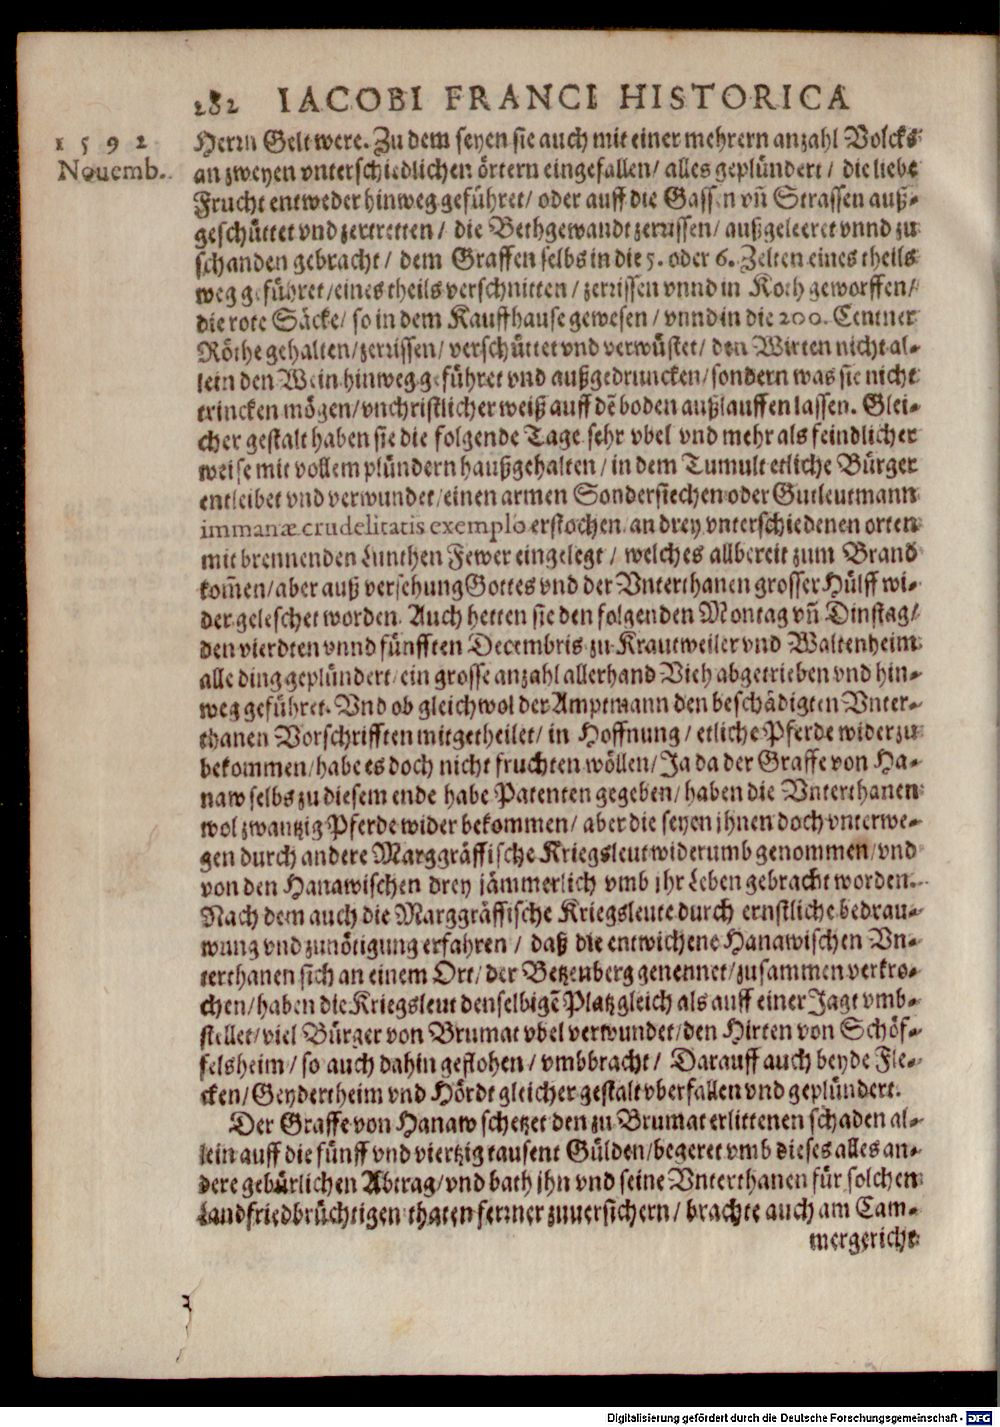 282 IACOBI FRANCI HISTORICA
1592
Nouemb.
Herrn Gelt were. Zu dem seyen sie auch mit einer mehrern anzahl Volcks
an zweyen vnterschiedlichen örtern eingefallen/ alles geplündert/ die liebe
Frucht entweder hinweg geführet/ oder auff die Gassen vn̄ Strassen auß-
geschüttet vnd zertretten/ die Bethgewandt zerrissen/ außgeleeret vnnd zu
schanden gebracht/ dem Graffen selbs in die 5. oder 6. Zelten eines theils
weg geführet/ eines theils verschnitten/ zerrissen vnnd in Koth geworffen/
die rote Säcke/ so in dem Kauffhause gewesen/ vnnd in die 200. Centner
Röthe gehalten/ zerrissen/ verschüttet vnd verwüstet/ den Wirten nicht al-
lein den Wein hinweg geführet vnd außgedruncken/ sondern was sie nicht
trincken mögen/ vnchristlicher weiß auff dē boden außlauffen lassen. Glei-
cher gestalt haben sie die folgende Tage sehr vbel vnd mehr als feindlicher
weise mit vollem plündern haußgehalten/ in dem Tumult etliche Bürger
entleibet vnd verwundet/ einen armen Sondersiechen oder Gutleutmann
immanæ crudelitatis exemplo erstochen. an drey vnterschiedenen orten
mit brennenden Lunthen Fewer eingelegt/ welches allbereit zum Brand
kom̄en/ aber auß versehung Gottes vnd der Vnterthanen grosser Hülff wi-
der geleschet worden. Auch hetten sie den folgenden Montag vn̄ Dinstag/
den vierdten vnnd fünfften Decembris zu Krautweiler vnd Waltenheim
alle ding geplündert/ ein grosse anzahl allerhand Vieh abgetrieben vnd hin-
weg geführet. Vnd ob gleichwol der Amptmann den beschädigten Vnter-
thanen Vorschrifften mitgetheilet/ in Hoffnung/ etliche Pferde wider zu
bekommen/ habe es doch nicht fruchten wöllen/ Ja da der Graffe von Ha-
naw selbs zu diesem ende habe Patenten gegeben/ haben die Vnterthanen
wol zwantzig Pferde wider bekommen/ aber die seyen jhnen doch vnterwe-
gen durch andere Marggräffische Kriegsleut widerumb genommen/ vnd
von den Hanawischen drey jämmerlich vmb jhr Leben gebracht worden.
Nach dem auch die Marggräffische Kriegsleute durch ernstliche bedrau-
wung vnd zunötigung erfahren/ daß die entwichene Hanawischen Vn-
terthanen sich an einem Ort/ der Betzenberg genennet/ zusammen verkro-
chen/ haben die Kriegsleut denselbigē Platz gleich als auff einer Jagt vmb-
stellet/ viel Bürger von Brumat vbel verwundet/ den Hirten von Schöf-
felsheim/ so auch dahin geflohen/ vmbbracht/ Darauff auch beyde Fle-
cken/ Geydertheim vnd Hördt gleicher gestalt vberfallen vnd geplündert.
Der Graffe von Hanaw schetzet den zu Brumat erlittenen schaden al-
lein auff die fünff vnd viertzig tausent Gülden/ begeret vmb dieses alles an-
dere gebürlichen Abtrag/ vnd bath jhn vnd seine Vnterthanen für solchen
Landfriedbrüchtigen thaten ferrner zuuersichern/ brachte auch am Cam-
mergericht
Digitalisierung gefördert durch die Deutsche Forschungsgemeinschaft - DFG